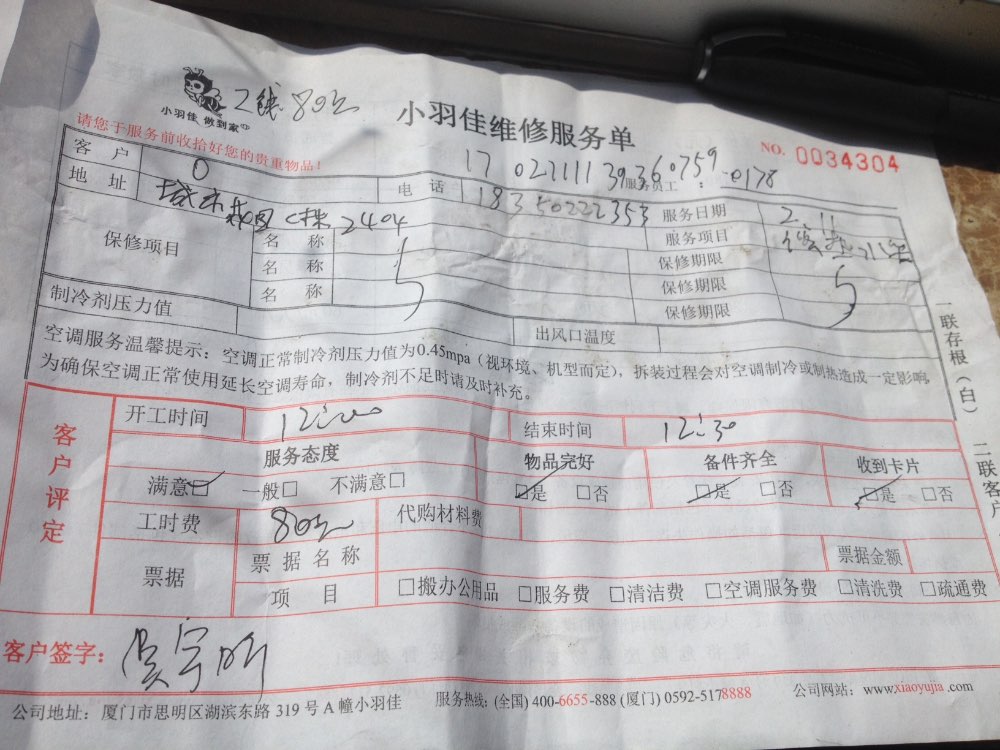 80元
小羽佳 做到家
小羽佳维修服务单
NO. 0034304
请您于服务前收拾好您的贵重物品！
客 户
17 0271111 39360759 0178
服务员工：
地 址 C栋2404 电 话 18350222353 服务日期 2.11
保修项目 名 称 服务项目
名 称 保修期限
名 称 保修期限
保修期限
制冷剂压力值 出风口温度
空调服务温馨提示：空调正常制冷剂压力值为0.45mpa（视环境、机型而定），拆装过程会对空调制冷或制热造成一定影响，
为确保空调正常使用延长空调寿命，制冷剂不足时请及时补充。
一联存根（白） 二联客户
客户评定
开工时间 12:00 结束时间 12:30
服务态度 物品完好 备件齐全 收到卡片
满意□ 一般□ 不满意□ □是 □否 □是 □否 □是 □否
工时费 80元 代购材料费
票据 票 据 名 称 票据金额
项 目 □搬办公用品 □服务费 □清洁费 □空调服务费 □清洗费 □疏通费
客户签字：
公司地址：厦门市思明区湖滨东路 319 号 A 幢小羽佳 服务热线：(全国) 400-6655-888 (厦门) 0592-5178888 公司网站：www.xiaoyujia.com